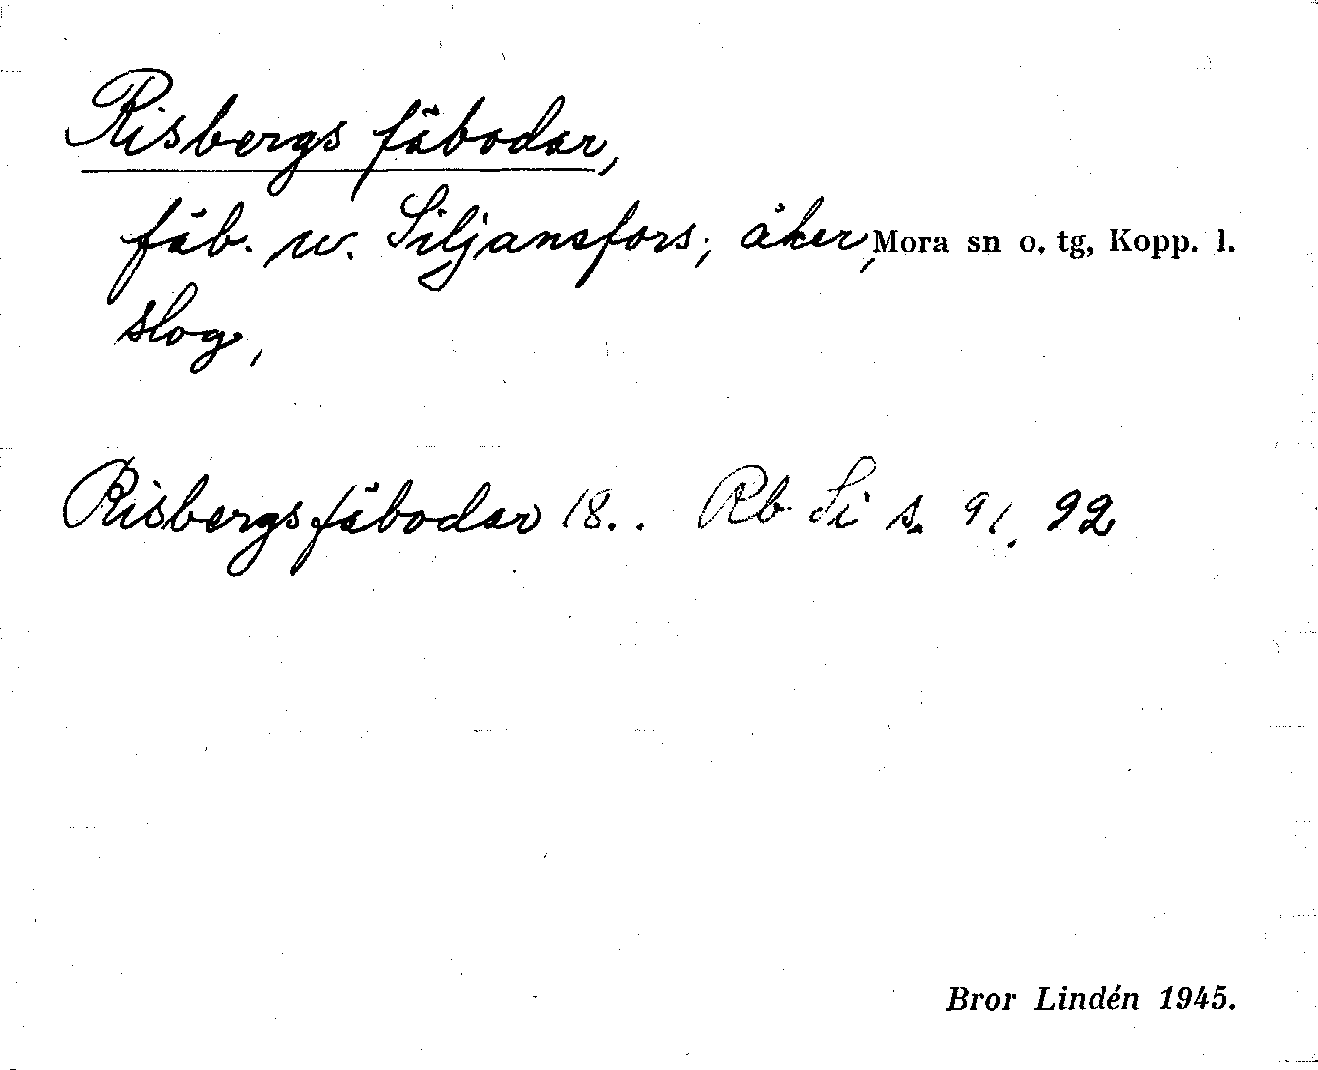 Risbergs fäbodar,
fäb. u. Siljansfors; åker, Mora sn o. tg, Kopp. l.
slog,
Risbergsfäbodar 18.. Rb Si s. 91, 92
Bror Lindén 1945.